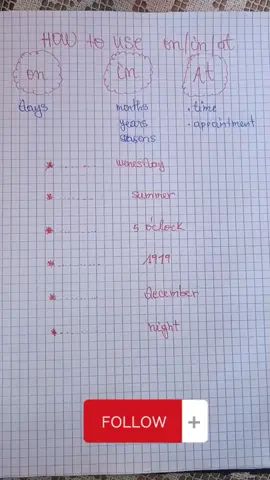 HOW to use on/in/at
on in At
days months • time
years • appointment
seasons
* .......... wenesday
* .......... summer
* .......... 5 o'clock
* .......... 1919
* .......... december
* .......... night
FOLLOW +